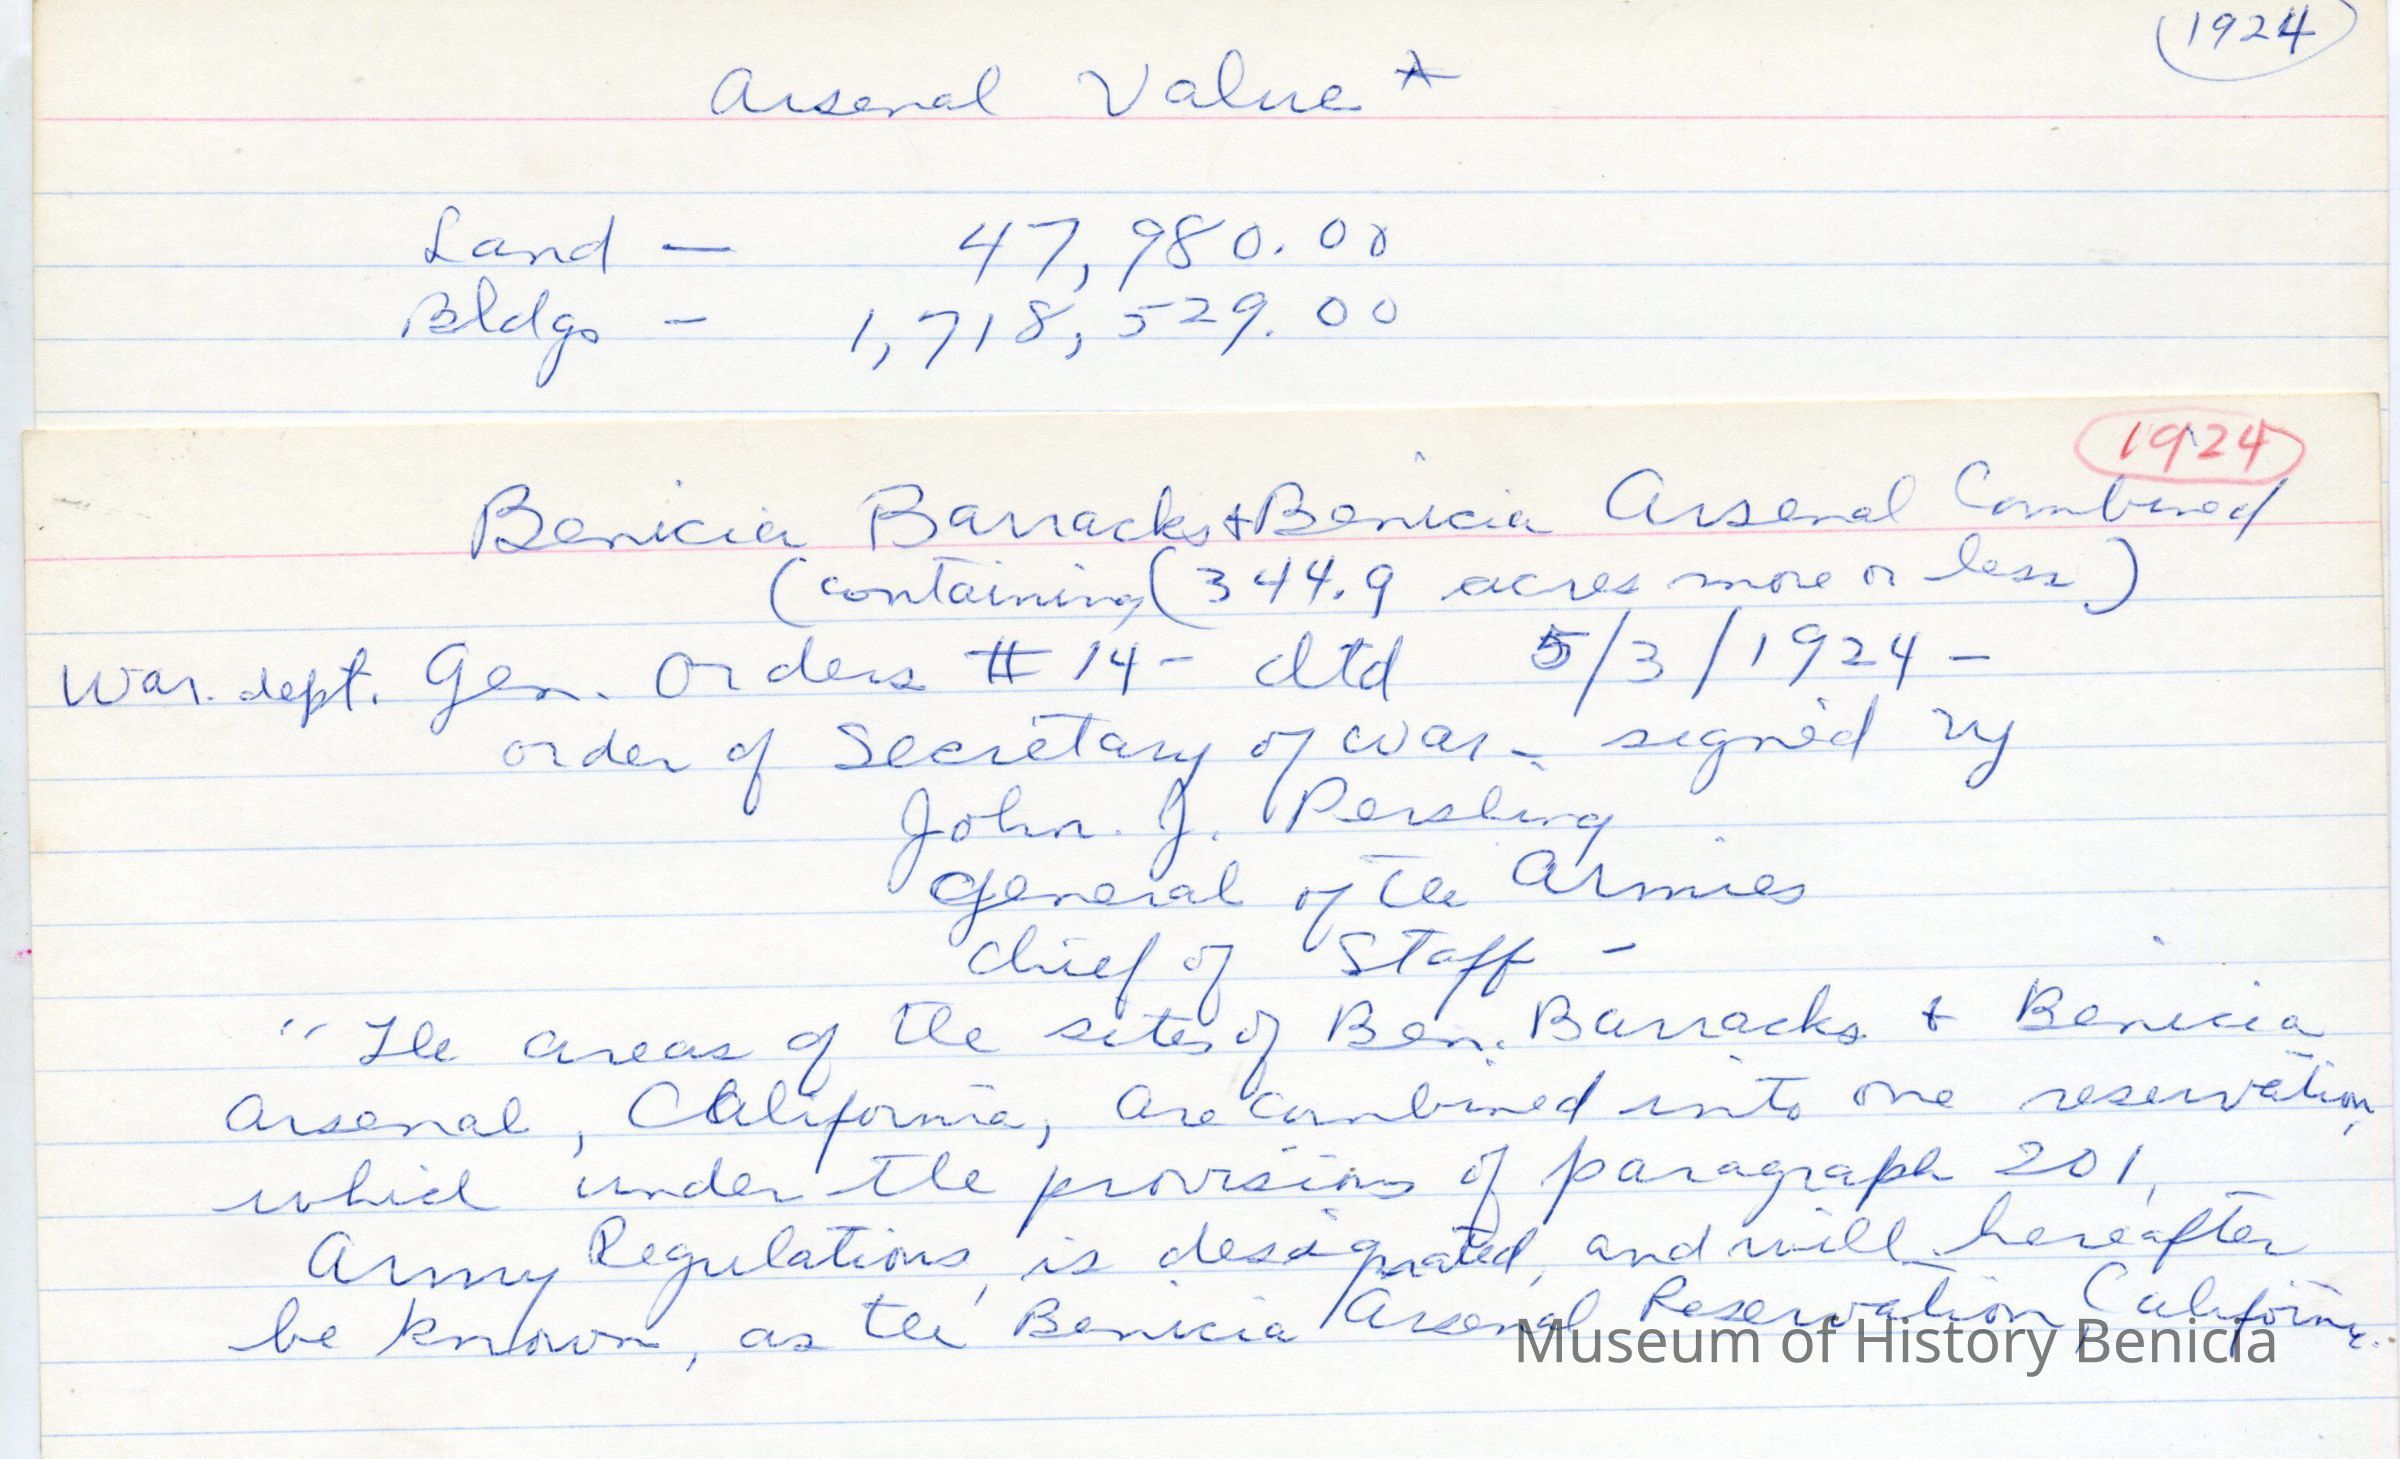 1924
Arsenal Value *
Land — 47,980.00
Bldgs – 1,718,529.00
1924
Benicia Barracks & Benicia Arsenal Combined
(containing (344.9 acres more or less)
War. dept. Gen. Orders # 14 – dtd 5/3/1924 –
order of Secretary of War – signed by
John. J. Pershing
General of the Armies
Chief of Staff –
" The areas of the sites of Ben. Barracks & Benicia
Arsenal, California, are combined into one reservation,
which under the provisions of paragraph 201,
Army Regulations, is designated, and will hereafter
be known, as the Benicia Arsenal Reservation, California.
Museum of History Benicia